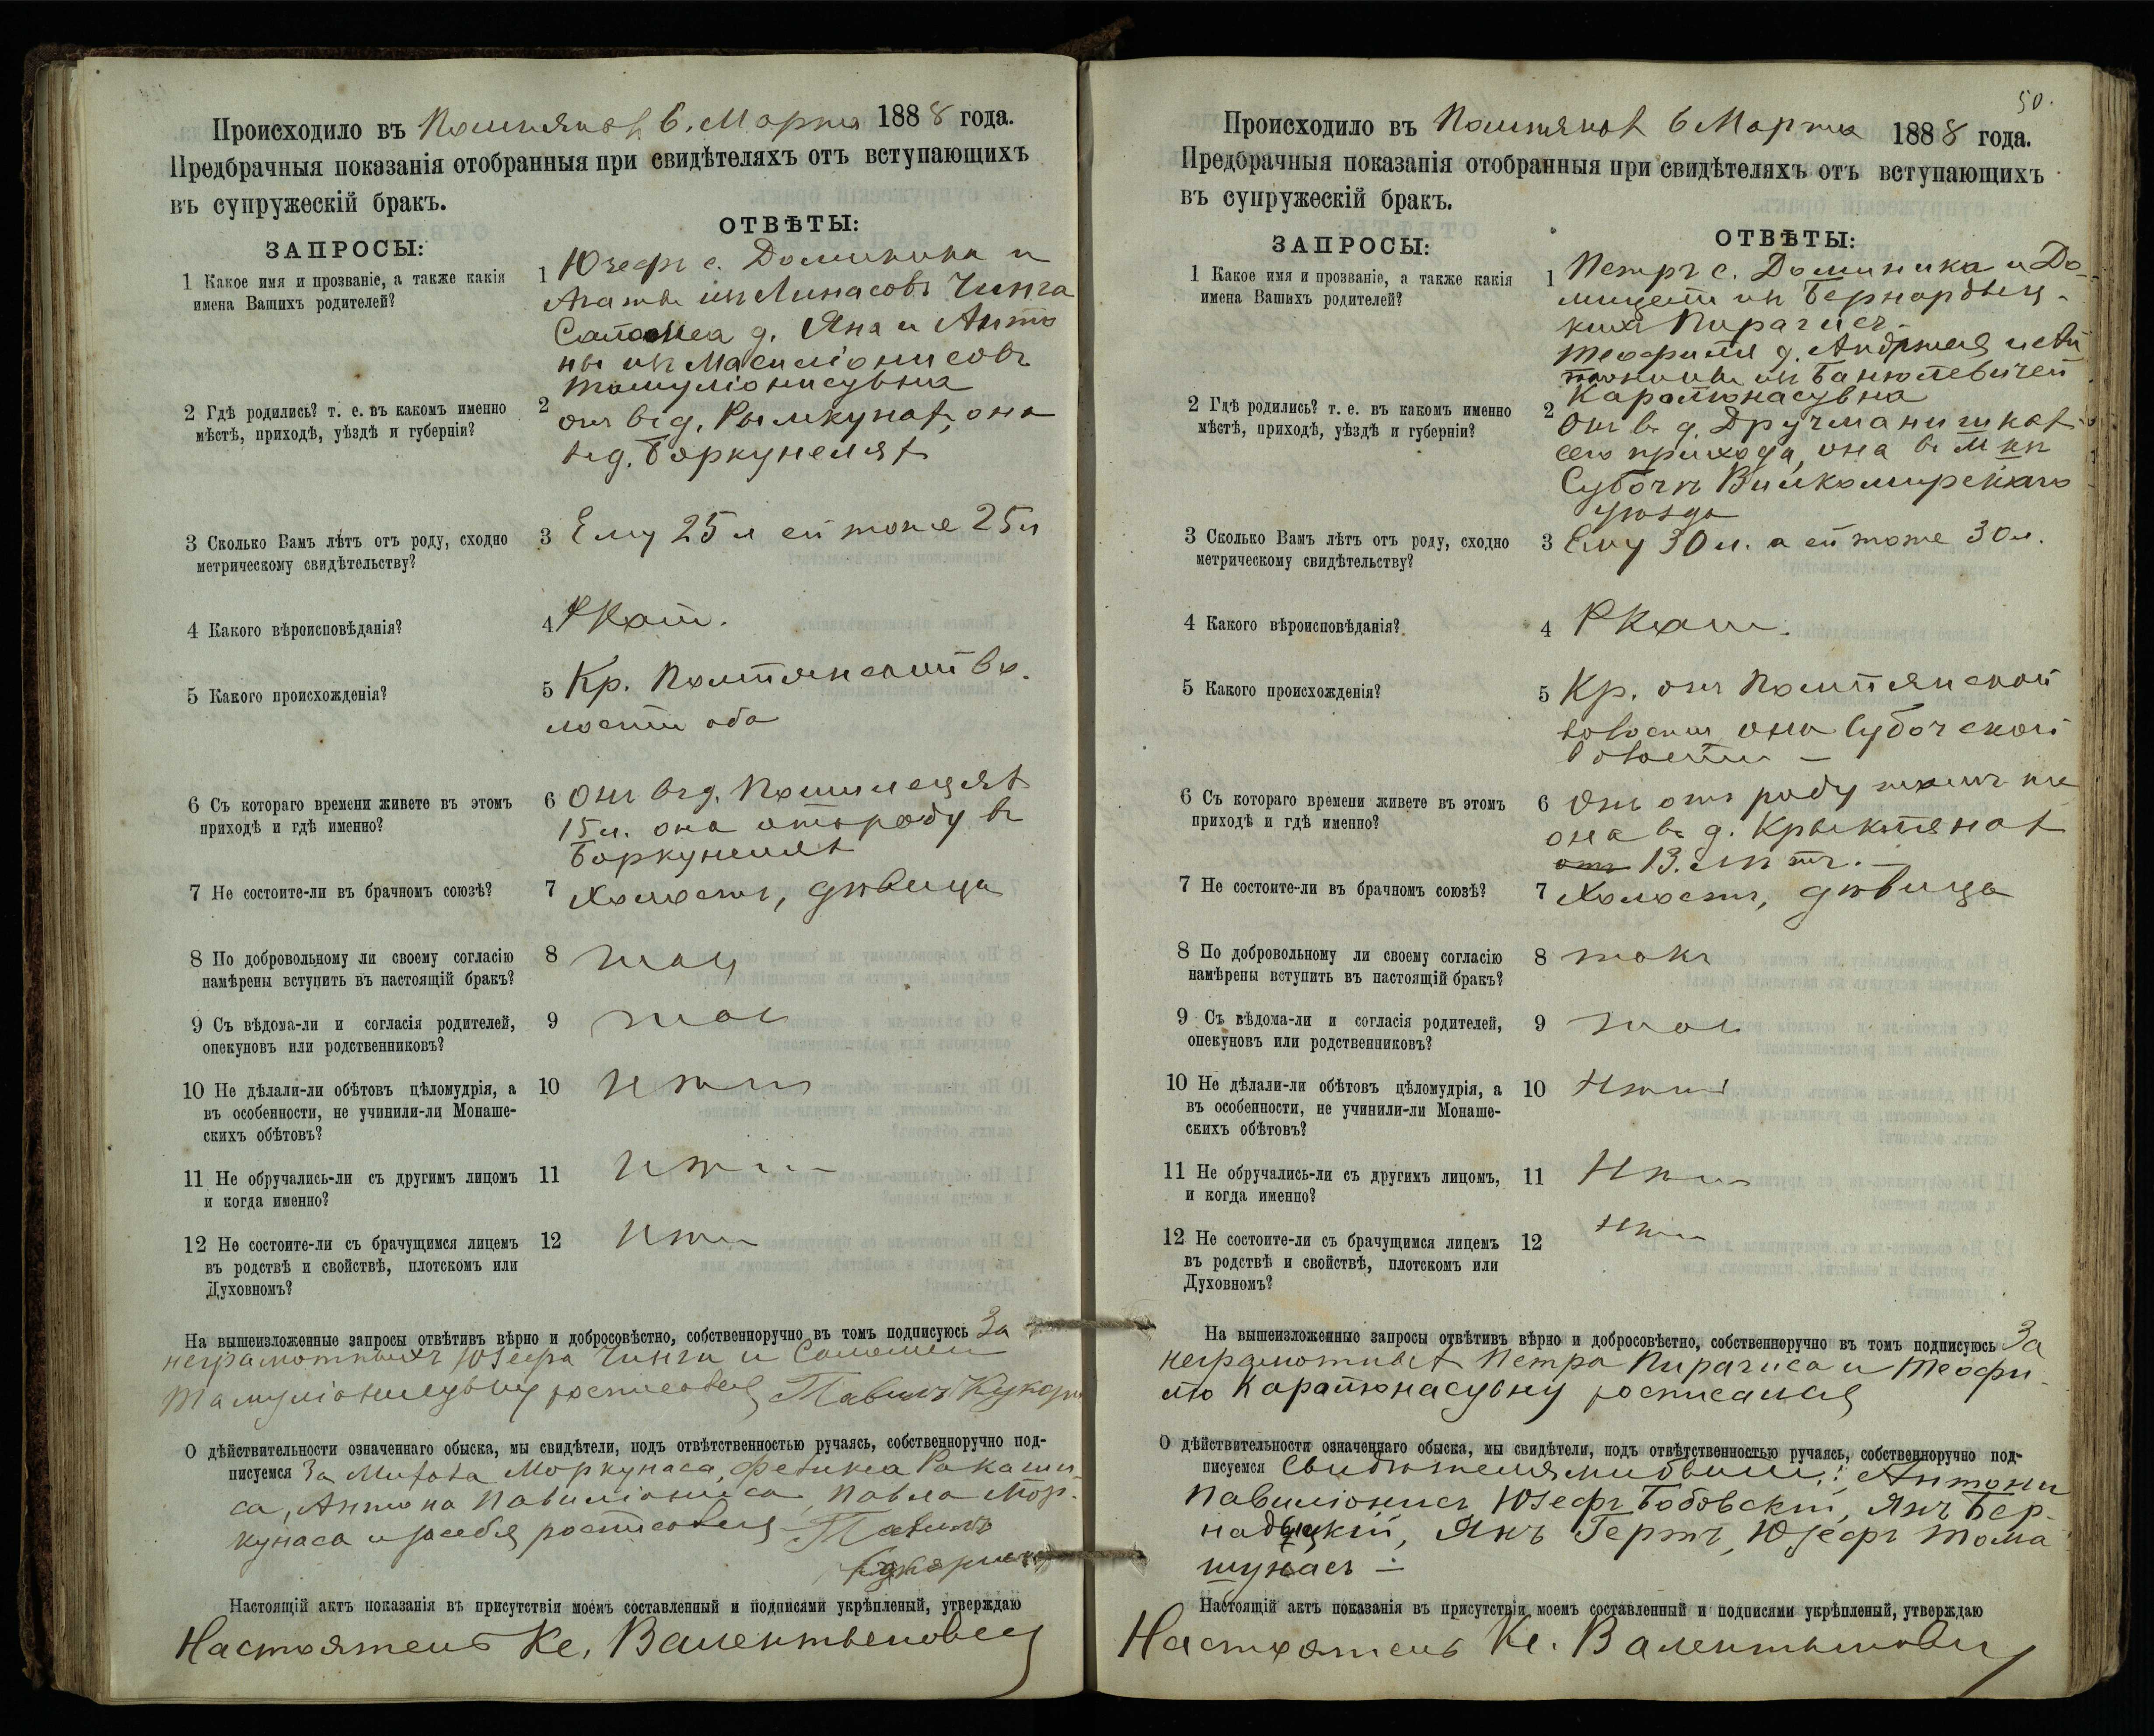 Происходило въ 6. Марта 1888 года.
Предбрачныя показанія отобранныя при свидѣтеляхъ отъ вступающихъ
въ супружескій бракъ.
ЗАПРОСЫ:
ОТВѢТЫ:
1 Какое имя и прозваніе, а также какія
имена Вашихъ родителей?
1 Юзефъ с. Доминика и
Агаты изъ Линасовъ Чинга
Саломеа д. Яна и Анто
ны изъ
2 Гдѣ родились? т. е. въ какомъ именно
мѣстѣ, приходѣ, уѣздѣ и губерніи?
2 онъ въ д. Рымкунахъ, она
въ д. Боркунеляхъ
3 Сколько Вамъ лѣтъ отъ роду, сходно
метрическому свидѣтельству?
3 Ему 25 л ей тоже 25 л
4 Какого вѣроисповѣданія?
4 РКат.
5 Какого происхожденія?
5 Кр. во
лости оба
6 Съ котораго времени живете въ этомъ
приходѣ и гдѣ именно?
6 Онъ въ д.
15 л. она отъ роду въ
Боркунеляхъ
7 Не состоите-ли въ брачномъ союзѣ?
7 Холостъ, дѣвица
8 По добровольному ли своему согласію
намѣрены вступить въ настоящій бракъ?
8 такъ
9 Съ вѣдома-ли и согласія родителей,
опекуновъ или родственниковъ?
9 такъ
10 Не дѣлали-ли обѣтовъ цѣломудрія, а
въ особенности, не учинили-ли Монаше-
скихъ обѣтовъ?
10 Нѣтъ
11 Не обручались-ли съ другимъ лицомъ
и когда именно?
11 Нѣтъ
12 Не состоите-ли съ брачущимся лицемъ
въ родствѣ и свойствѣ, плотскомъ или
Духовномъ?
12 Нѣтъ
На вышеизложенные запросы отвѣтивъ вѣрно и добросовѣстно, собственноручно въ томъ подписуюсь За
неграмотныхъ Юзефа Чинги и Саломеи
Павелъ
О дѣйствительности означеннаго обыска, мы свидѣтели, подъ отвѣтственностью ручаясь, собственноручно под-
писуемся За Моркунаса,
са, Антона Павиліониса, Павла Мор-
кунаса и за себя Павелъ
Настоящій актъ показанія въ присутствіи моемъ составленный и подписями укрѣпленый, утверждаю
Настоятель Кс.
50.
Происходило въ 6 Марта 1888 года.
Предбрачныя показанія отобранныя при свидѣтеляхъ отъ вступающихъ
въ супружескій бракъ.
ЗАПРОСЫ:
ОТВѢТЫ:
1 Какое имя и прозваніе, а также какія
имена Вашихъ родителей?
1 Петръ с. Доминика и До-
изъ
кихъ Пирагисъ
Теофилія д. Андржея и Ан
изъ Банюлевичей
Карапюнасувна
2 Гдѣ родились? т. е. въ какомъ именно
мѣстѣ, приходѣ, уѣздѣ и губерніи?
2 Онъ въ д.
сего прихода, она въ
Суботчъ Вилкомирскаго
уѣзда
3 Сколько Вамъ лѣтъ отъ роду, сходно
метрическому свидѣтельству?
3 Ему 30 л. а ей тоже 30 л.
4 Какого вѣроисповѣданія?
4 РКат.
5 Какого происхожденія?
5 Кр. онъ
она
6 Съ котораго времени живете въ этомъ
приходѣ и гдѣ именно?
6 Онъ отъ роду
она въ д.
13. лѣтъ.
7 Не состоите-ли въ брачномъ союзѣ?
7 Холостъ, дѣвица
8 По добровольному ли своему согласію
намѣрены вступить въ настоящій бракъ?
8 такъ
9 Съ вѣдома-ли и согласія родителей,
опекуновъ или родственниковъ?
9 такъ
10 Не дѣлали-ли обѣтовъ цѣломудрія, а
въ особенности, не учинили-ли Монаше-
скихъ обѣтовъ?
10 Нѣтъ
11 Не обручались-ли съ другимъ лицомъ,
и когда именно?
11 Нѣтъ
12 Не состоите-ли съ брачущимся лицемъ
въ родствѣ и свойствѣ, плотскомъ или
Духовномъ?
12 Нѣтъ
На вышеизложенные запросы отвѣтивъ вѣрно и добросовѣстно, собственноручно въ томъ подписуюсь За
неграмотныхъ Петра Пирагиса и Теофи-
лю Карапюнасувну росписался
О дѣйствительности означеннаго обыска, мы свидѣтели, подъ отвѣтственностью ручаясь, собственноручно под-
писуемся Свидѣтелями были: Антони
Павиліонисъ, Юзефъ Бобовскій, Янъ Бер-
Янъ Гертъ, Юзефъ Тома
шунасъ
Настоящій актъ показанія въ присутствіи моемъ составленный и подписями укрѣпленый, утверждаю
Настоятель Кс.